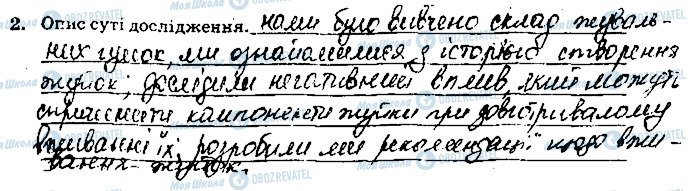 2. Опис суті дослідження. нами було вивчено склад жуваль-
них гумок, ми ознайомилися з історією створення
жуйок; дослідили негативний вплив, який можуть
спричинити компоненти жуйки при довготривалому
вживанні їх; розробили ми рекомендації щодо вжи-
вання жуйок.